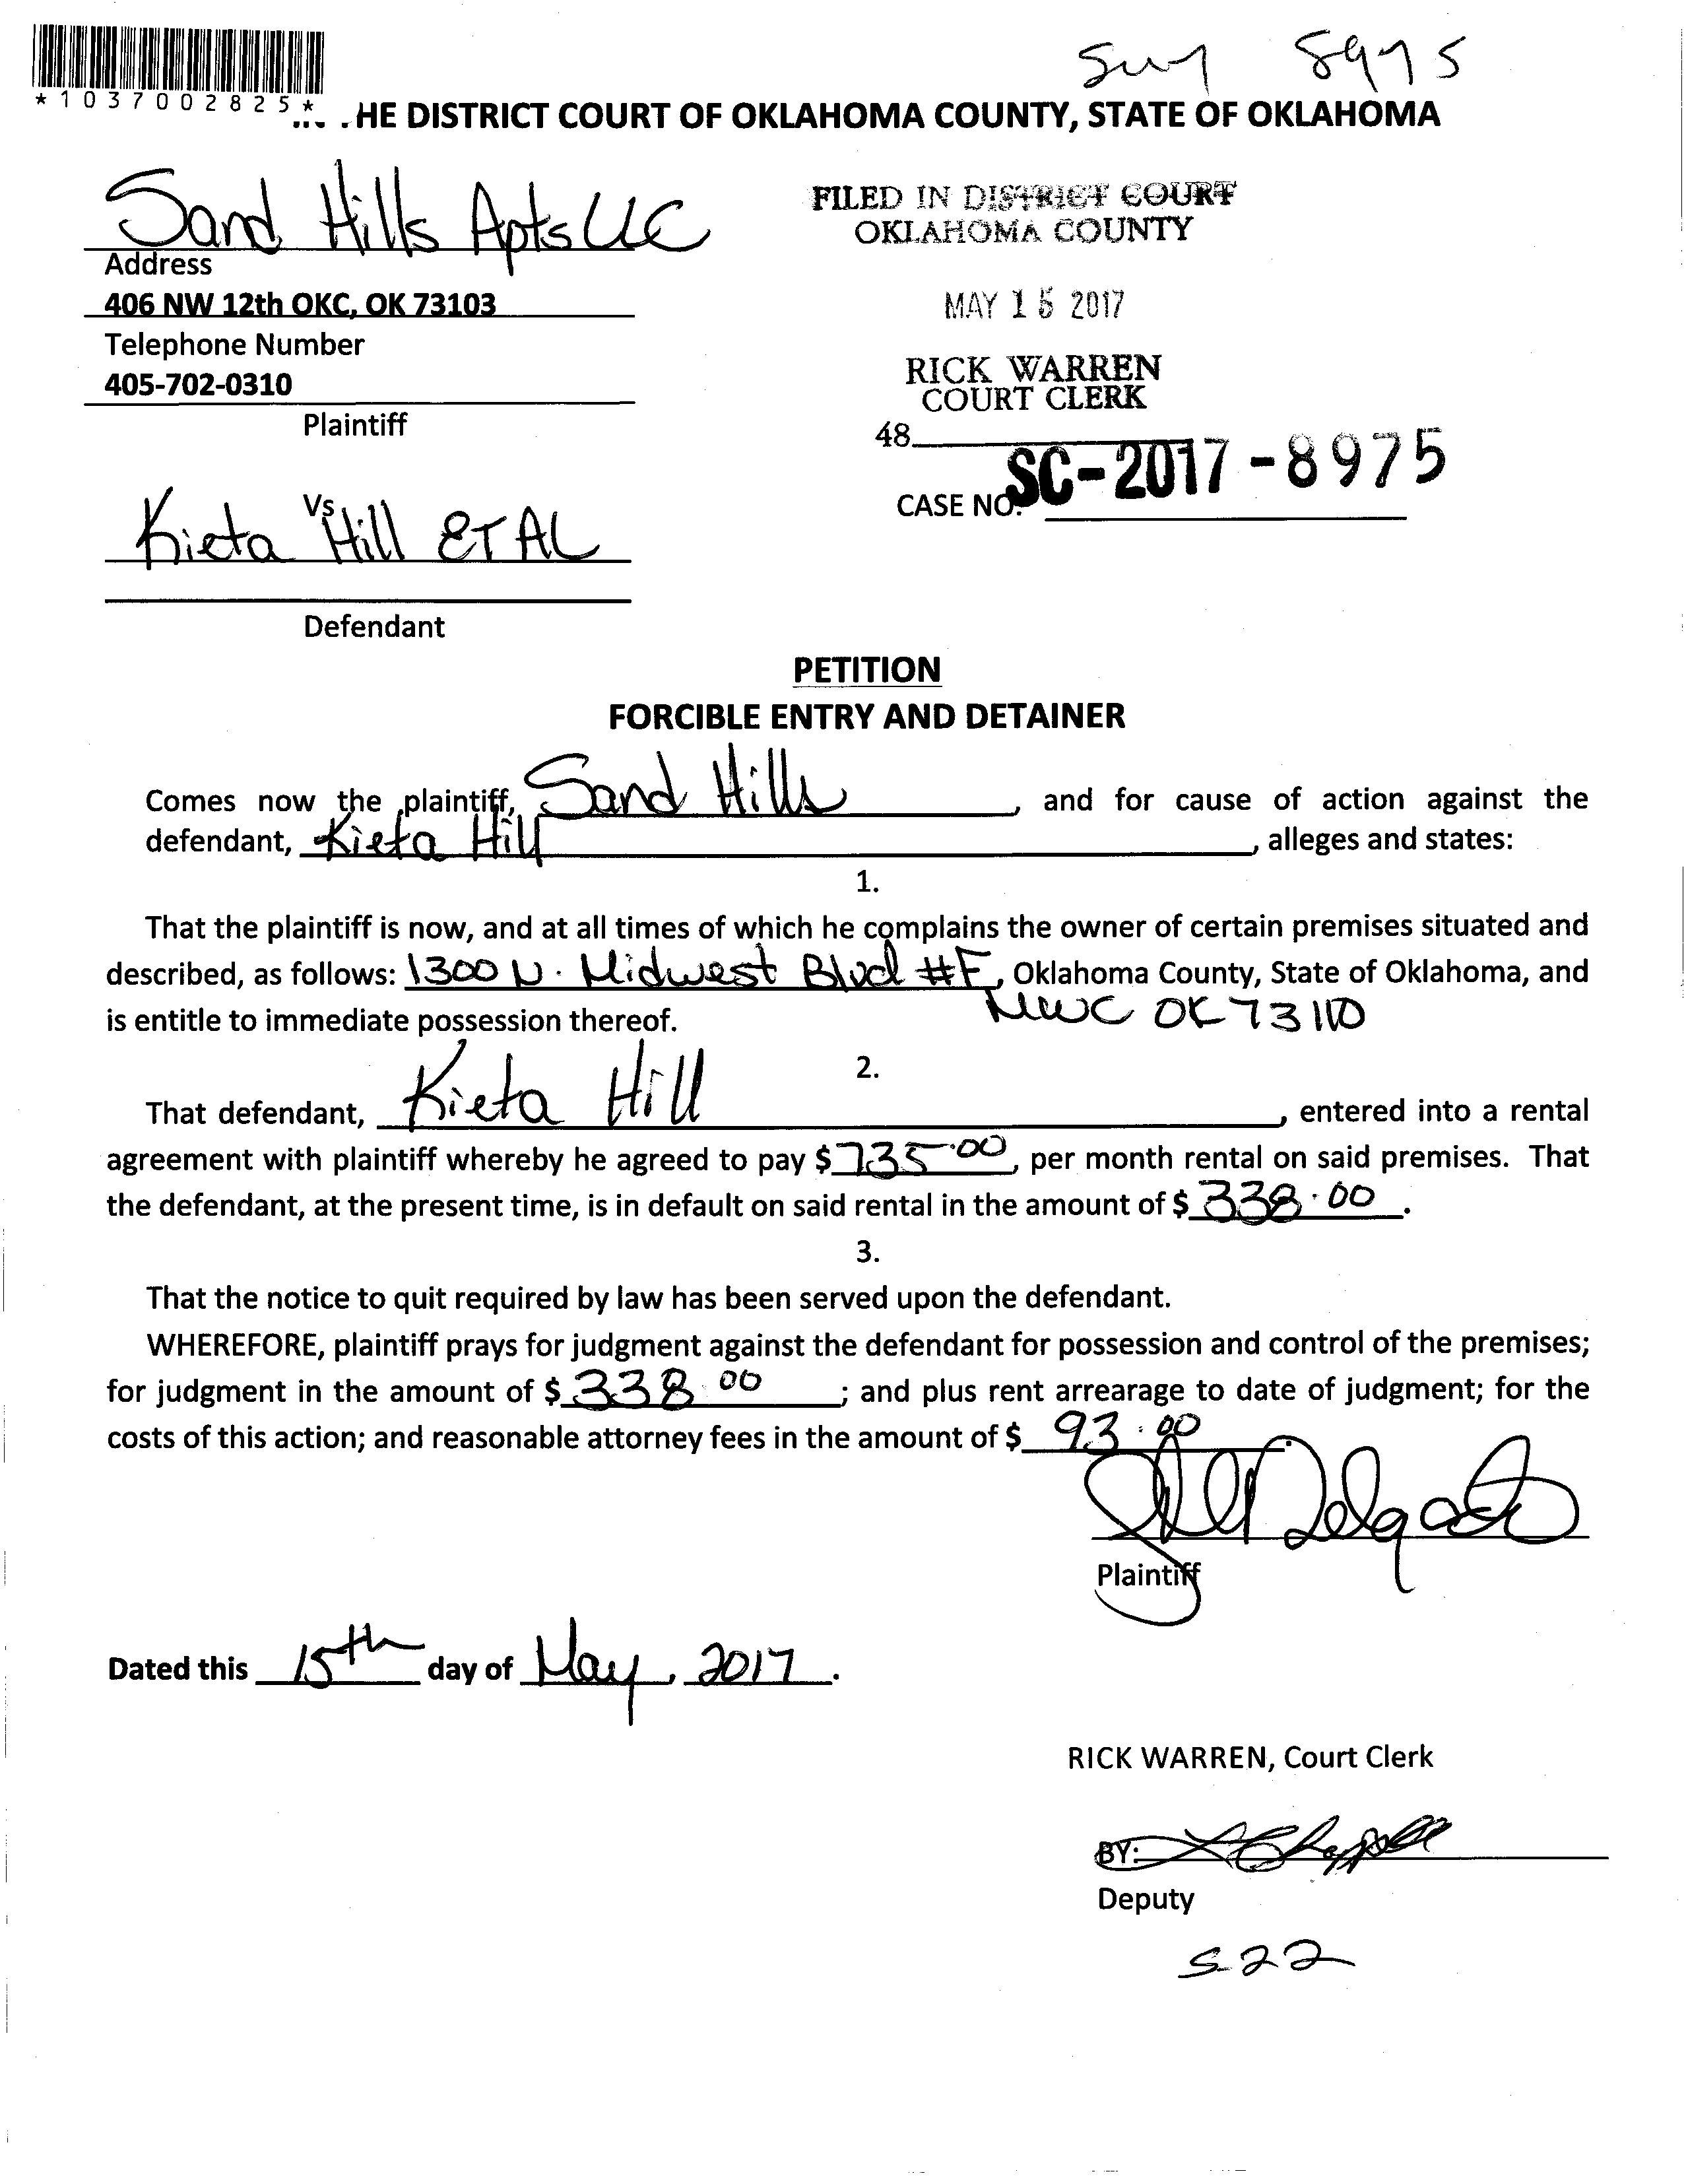 8975
*1037002825*
HE DISTRICT COURT OF OKLAHOMA COUNTY, STATE OF OKLAHOMA
Sand Hills Apts LLC
Address
406 NW 12th OKC, OK 73103
Telephone Number
405-702-0310
Plaintiff
FILED IN DISTRICT COURT
OKLAHOMA COUNTY
MAY 15 2017
RICK WARREN
COURT CLERK
48
CASE NO. SC-2017-8975
Vs
Kieta Hill ET AL
Defendant
PETITION
FORCIBLE ENTRY AND DETAINER
Comes now the plaintiff, Sand Hills, and for cause of action against the
defendant, Kieta Hill, alleges and states:
1.
That the plaintiff is now, and at all times of which he complains the owner of certain premises situated and
described, as follows: 1300 N. Midwest Blvd #F, Oklahoma County, State of Oklahoma, and
is entitle to immediate possession thereof. MWC OK 73110
2.
That defendant, Kieta Hill, entered into a rental
agreement with plaintiff whereby he agreed to pay $ 735.00, per month rental on said premises. That
the defendant, at the present time, is in default on said rental in the amount of $ 338.00.
3.
That the notice to quit required by law has been served upon the defendant.
WHEREFORE, plaintiff prays for judgment against the defendant for possession and control of the premises;
for judgment in the amount of $ 338.00; and plus rent arrearage to date of judgment; for the
costs of this action; and reasonable attorney fees in the amount of $ 93.00.
Delgado
Plaintiff
Dated this 15th day of May, 2017.
RICK WARREN, Court Clerk
BY:
Deputy
522